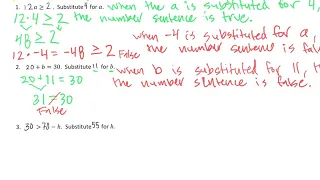 1. 12a ≥ 2. Substitute 4 for a. when the a is substituted for 4,
12·4 ≥ 2 the number sentence is true.
48 ≥ 2 when -4 is substituted for a,
12·-4=-48 ≥ 2 False the number sentence is
2. 20 + b = 30. Substitute 11 for b. when b is substituted for 11,
20+11 = 30 the number sentence is false.
31 ≠ 30
False
3. 30 > - h. Substitute 55 for h.